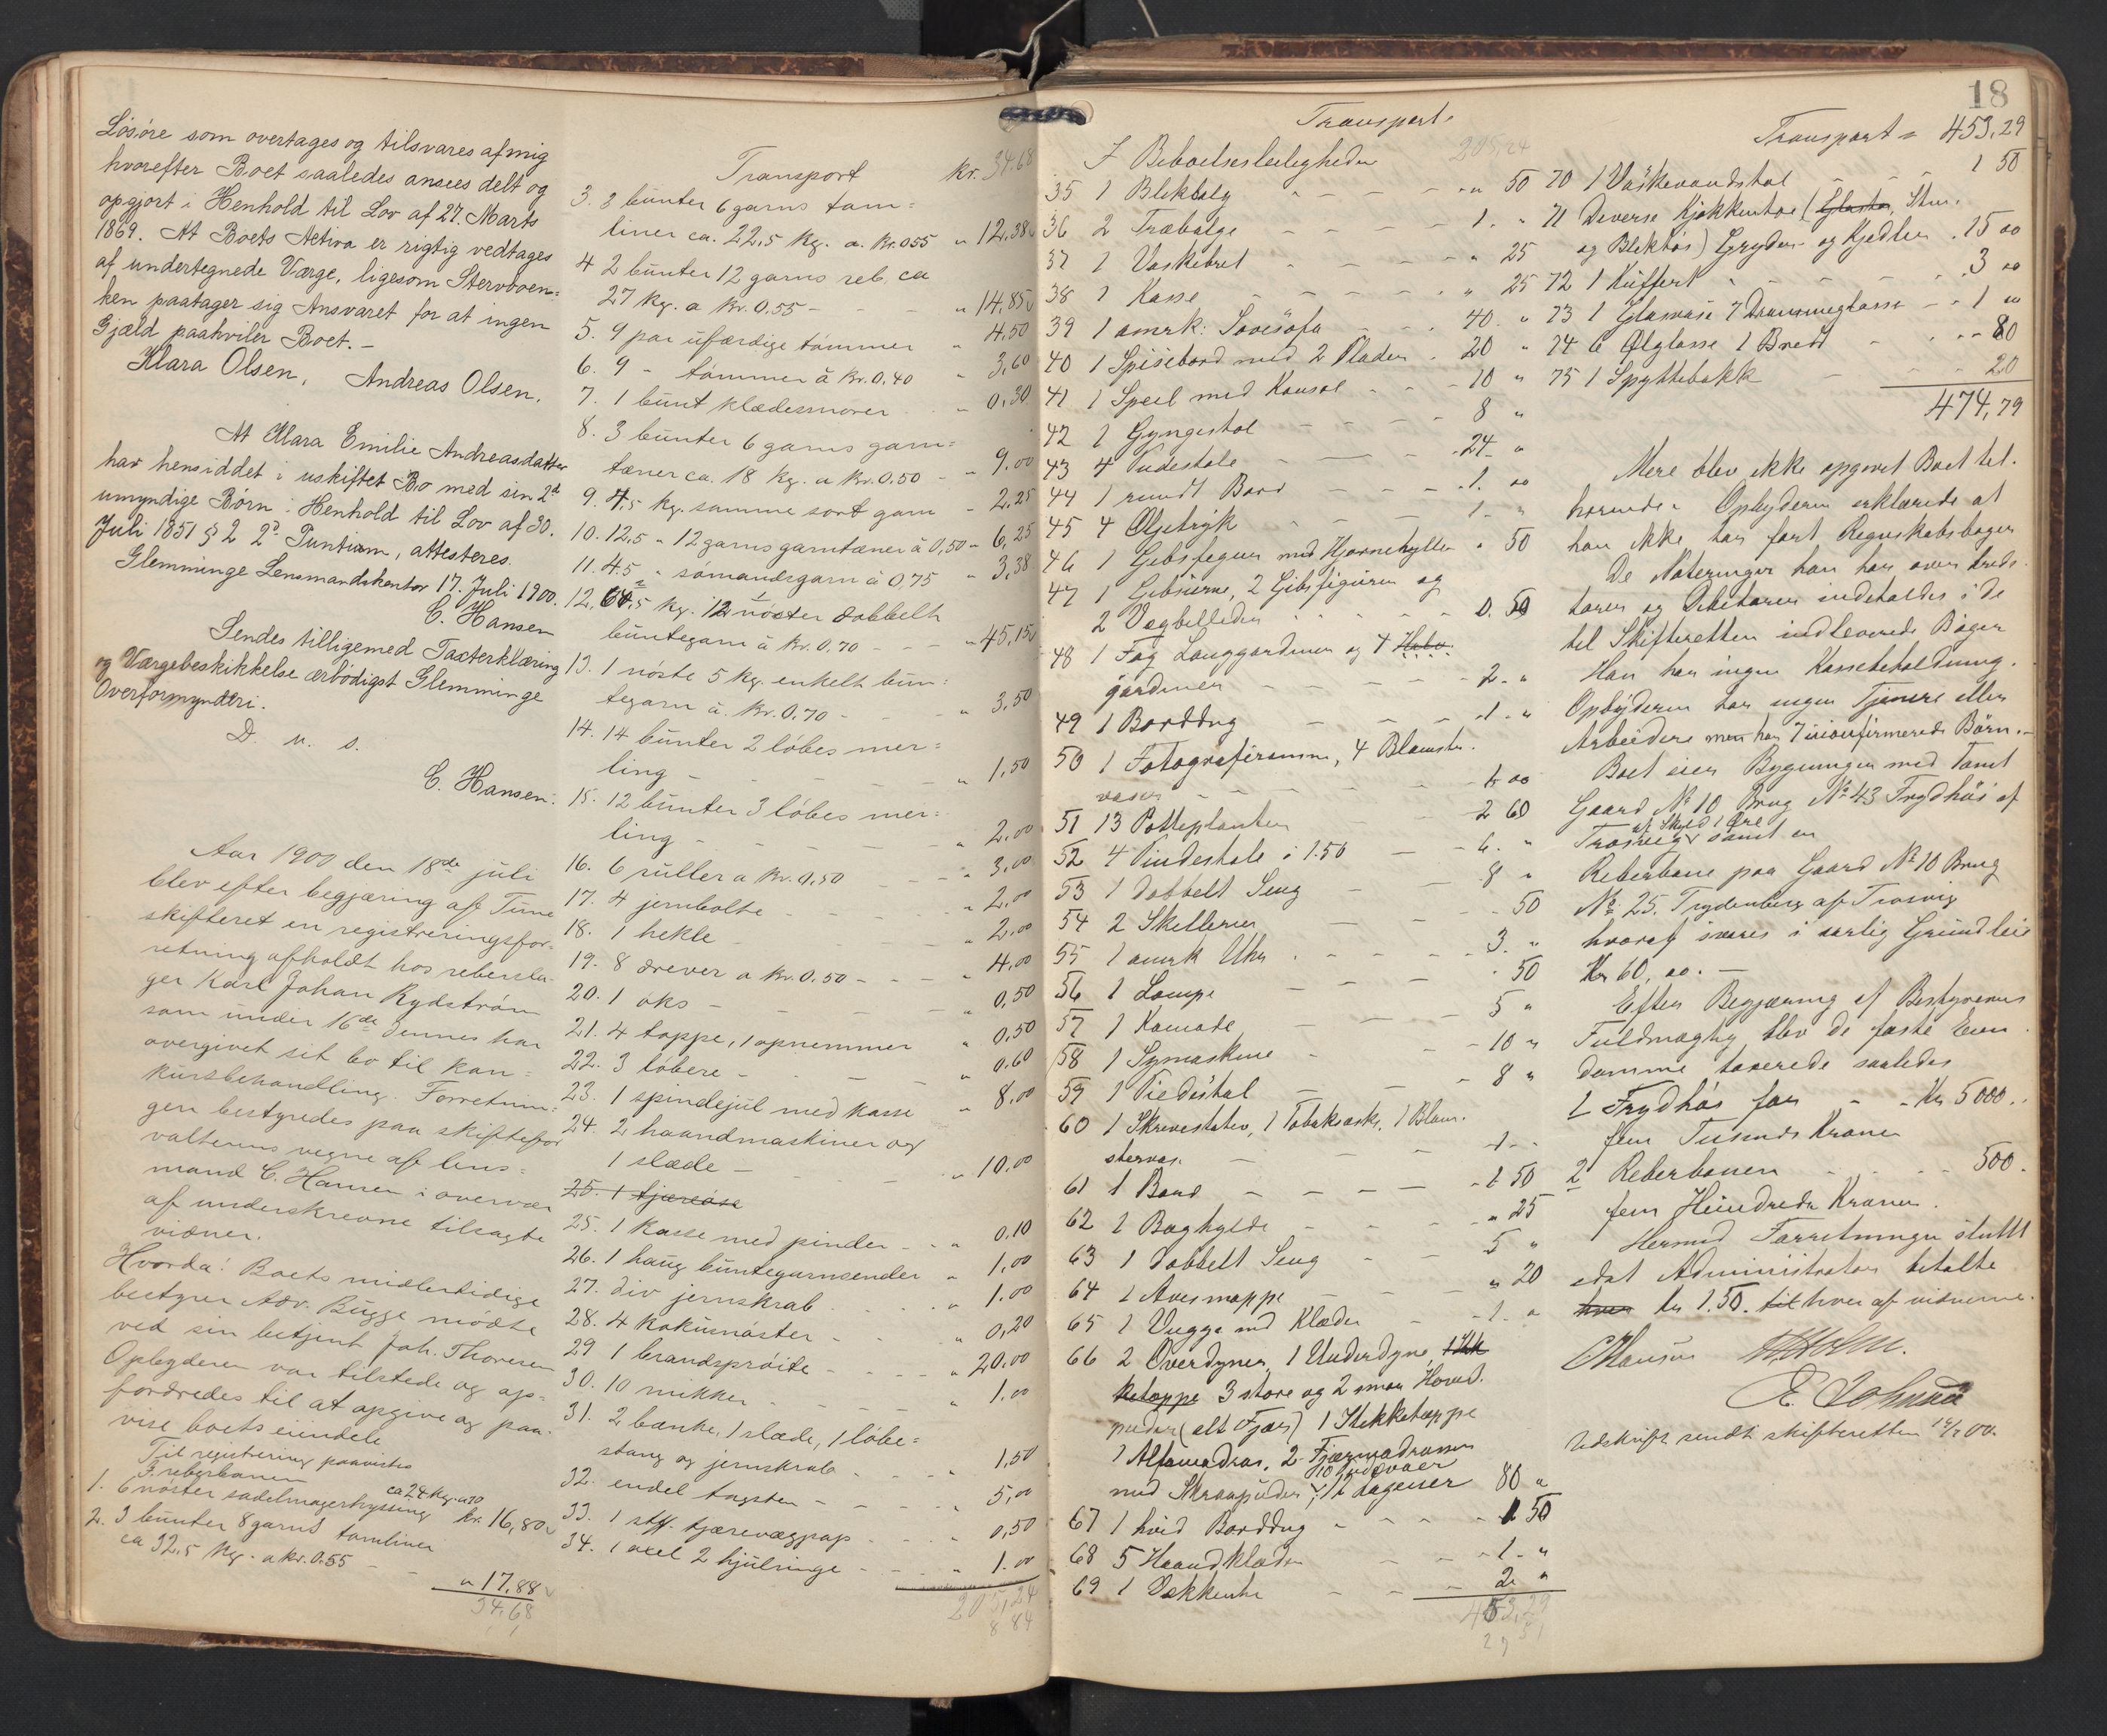 Løsøre som overtages og tilsvares af mig
hvorefter Boet saaledes ansees delt og
opgjort i Henhold til Lov af 27. Marts
1869. At Boets Activa er rigtig vedtages
af undertegnede Værge, ligesom Stervboen=
ken paatager sig Ansvaret for at ingen
Gjæld paahviler Boet. -
Klara Olsen, Andreas Olsen.
At Klara Emilie Andreasdatter
har hensiddet i uskiftet Bo med sin 2de
umyndige Børn i Henhold til Lov af 30.
Juli 1851 § 2 2d Puntum, attesteres.
Glemminge Lensmandskontor 17. Juli 1900.
C. Hansen
Sendes tilligemed Taxterklæring
og Værgebeskikkelse ærbødigst Glemminge
Overformynderi.
D. u. s.
C. Hansen.
Aar 1900 den 18de juli
blev efter begjæring af Tune
skifteret en registreringsfor-
retning afholdt hos rebersla-
ger Karl Johan Rydstrøm
som under 16de dennes har
overgivet sit bo til kon=
kursbehandling. Forretnin=
gen bestyredes paa skiftefor
valterens vegne af lens=
mand C. Hansen i overvær
af underskrevne tilsagte
vidner.
Hvorda! Boets midlertidige
bestyrer Adv. Bugge mødte
ved sin betjent Joh. Thoresen
Opbyderen var tilstede og op-
fordredes til at opgive og paa-
vise boets eiendele
Til registrering paavistes
I reberbanen
1. 6 nøster sadelmagerhyssing ca 24 kg. a 70 kr. 16,80
2. 3 bunter 8 garns tamliner
ca 32.5 kg. a kr. 0.55 - - " 17,88
34,68
Transport kr. 34.68
3. 3 bunter 6 garns tam=
liner ca. 22,5 kg. a. kr. 0.55 " 12,38
4 2 bunter 12 garns reb. ca
27 kg. a kr. 0.55 - - - " 14,85
5. 9 par ufærdige tømmer " 4,50
6. 9 - tømmer à kr. 0,40 " 3,60
7. 1 bunt klædessnorer " 0,30
8. 3 bunter 6 garns garn=
tæner ca. 18 kg. a kr. 0.50 - " 9.00
9. 4,5 kg. samme sort garn - 2,25
10. 12,5 " 12 garns garntæner à 0,50 - 6,25
11. 4.5 " sømandsgarn à 0,75 " 3,38
12. 64,5 kg. 12 nøster dobbelt
buntegarn à kr. 0,70 - - " 45,15
13. 1 nøste 5 kg. enkelt bun=
tegarn à. kr. 0,70 - - " 3,50
14. 14 bunter 2 løbes mer=
ling - - - " 1,50
15. 12 bunter 3 løbes mer=
ling - - - " 2,00
16. 6 ruller a kr. 0,50 - - " 3,00
17. 4 jernbolte - - - " 2,00
18. 1 hekle - - - " 2,00
19. 8 drever a kr. 0.50 - - " 4,00
20. 1 øks - - - " 0,50
21. 4 toppe, 1 opnemmer " 0,50
22. 3 løbere - - - " 0.60
23. 1 spindejul med kasse " 8,00
24. 2 haandmaskiner og
1 slæde - - - " 10.00
25. 1 tjæreøse
25. 1 kasse med pinder - - " 0,10
26. 1 haug buntegarnsender " 1,00
27. div jernskrab - - " 1.00
28. 4 kokusnøster - - " 0,20
29 1 brandsprøite - - " 20.00
30. 10 mikker - - " 1.00
31. 2 bænke, 1 slæde, 1 løbe=
stang og jernskrab - - " 1,50
32. endel tagsten - - " 5,00
33. 1 stk. tjærevægpap - " 0,50
34. 1 axel 2 hjulringe - - " 1.00
205,24
8 84
Transport.
I Beboelsesleiligheden 205,24
35 1 Blikbalg - - - " 50
36 2 Træbalge - - - 1. "
37 1 Vaskebret - - - " 25
38 1 Kasse - - - " 25
39 1 amrk: Sovesofa - - 40. "
40 1 Spisebord med 2 Plader - 20 "
41 1 Speil med Konsol - - 10 "
42 1 Gyngestol - - 8 "
43 4 Pudestole - - 24. "
44 1 rundt Bord - - 1. 00
45 4 Oljetryk - - 1. "
46 1 Gibsfigur med Hjørnehylle " 50
47 1 Gibsurne, 2 Gibsfigurer og
2 Vægbilleder - - 0. 50
48 1 Fag Langgardiner og 4 Halv
gardiner - - 2. "
49 1 Borddug - - 1. "
50 1 Fotografiramme, 4 Blomster.
vaser - - 1. 00
51 13 Potteplanter - - 2 60
52 4 Pindestole i 1.50 - 6. "
53 1 dobbelt Seng - - 8 "
54 2 Skillerier - - 50
55 1 amrk Uhr - - 3. "
56 1 Lampe - - 50
57 1 Komode - - 5 "
58 1 Symaskine - - 10 "
59 1 Piedestal - - 8 "
60 1 Skrivestativ, 1 Tobaksæske, 1 Blom.
stervas. - - 1. -
61 1 Bord - - 1 50
62 1 Boghylde - - " 25
63 1 dobbelt Seng - - 5 "
64 1 Avismappe - - " 20
65 1 Vugge med Klæder - 1. "
66 2 Overdyner, 1 Underdyne, 1 Stik
ketæppe 3 store og 2 smaa Hoved.
puder (alt Fjær) 1 Stikketæppe
1 Alfamadras, 2 Fjærmadrasser
med Skraapuder, 10 Pudevaer, 12 Lagener 80 "
67 1 hvid Borddug - - 1 50
68 5 Haandklæder - - 1. "
69 1 Vækkeuhr - - 2 "
453,29
18
Transport = 453,29
70 1 Vaskevandstol - - 1 50
71 Diverse Kjøkkentøi (Glastøi, Sten.
og Bliktøi) Gryder og Kjedler 15 00
72 1 Kuffert - - 3 00
73 1 Glasvase 7 Dramsmeglasse - 1 00
74 6 Ølglasse 1 Bredt - - 80
75 1 Spyttebakk - - 20
474,79
Mere blev ikke opgivet Boet til-
hørende. Opbyderen erklærede at
han ikke har ført Regnskabsbøger
De Noteringer han har over Kredi-
torer og Debitorer indeholdes i de
til Skifteretten indleverede Bøger
Han har ingen Kassebeholdning.
Opbyderen har ingen Tjenere eller
Arbeidere men har 7 uconfirmerede Børn.-
Boet eier Bygningen med Tomt
Gaard No 10 Brug No 43 Frydhøi af
Trosvig af Skyld 1 Øre samt en
Reberbane paa Gaard No 10 Brug
No. 25. Frydenberg af Trosvig
hvoraf svares i aarlig Grundleie
Kr 60,00. -
Efter Begjæring af Bestyrerens
Fuldmægtig blev de faste Eien
domme taxerede saaledes
1 Frydhøi for - - Kr 5000..
fem Tusinde Kroner
2 Reberbanen - - 500.
fem Hundrede Kroner.
Hermed Forretningen sluttt
edat Administrator betalte
hver kr 1.50. til hver af vidnerne.
C Hansen H. Holm.
E. Johnsen
Udskrift sendt skifteretten 19/7 00.